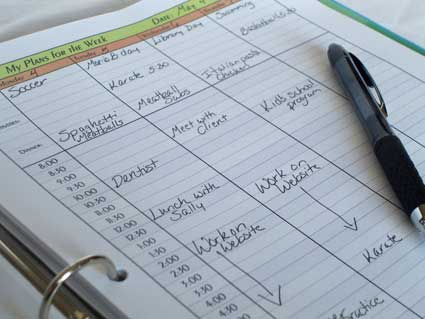 My Plans for the Week
Date: May 4
Soccer
Mario B day
Library Day
Swimming
Karate 5:30
Basketball 5:00
Spaghetti
Meatballs
Meatball
Subs
Italian pasta
Chicken
Dinner
8:00
8:30
9:00
9:30
10:00
10:30
11:00
11:30
12:00
12:30
1:00
1:30
2:00
2:30
3:00
3:30
4:00
4:30
Dentist
Meet with
Client
Kid's School
program
Lunch with
Sally
Work on
Website
Work on
Website
Karate